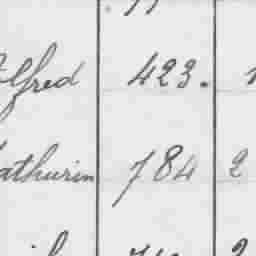 lfred 423.
athurin 784 2